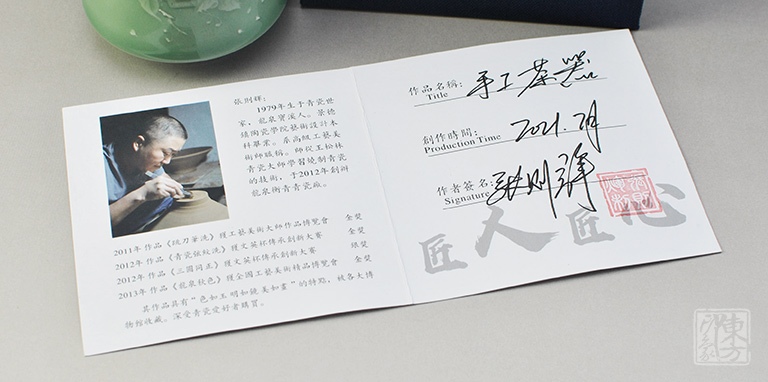 張則輝:
1979年生于青瓷世
家，龍泉寶溪人。景德
鎮陶瓷學院藝術設計本
科畢業。系高級工藝美
術師職稱。師從王松林
青瓷大師學習燒制青瓷
的技術，于2012年創辦
龍泉術青青瓷廠。
2011年 作品《級刀筆洗》獲工藝美術大師作品博覽會 金獎
2012年 作品《青瓷弦紋洗》獲文英杯傳承創新大賽 金獎
2012年 作品《三圓同五》獲文英杯傳承創新大賽 銀獎
2013年 作品《龍泉秋色》獲全國工藝美術精品博覽會 金獎
其作品具有“色如玉明如鏡美如畫”的特點，被各大博
物館收藏。深受青瓷愛好者購買。
作品名稱: 手工茶器
Title
創作時間: 2021.7月
Production Time
作者簽名: 張則輝
Signature
匠人匠心
東方